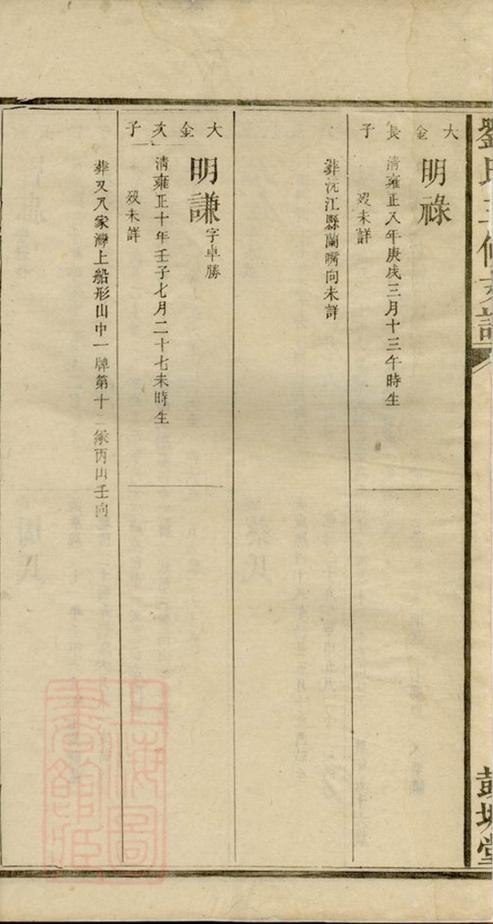 劉氏三修支譜
彭城堂
大金長子
明祿
清雍正八年庚戌三月十三午時生
歿未詳
葬沅江縣蘭嘴向未詳
大金次子
明謙字卓勝
清雍正十年壬子七月二十七未時生
歿未詳
葬叉八家灣上船形山中一牌第十二冢丙山壬向
上海圖書館藏